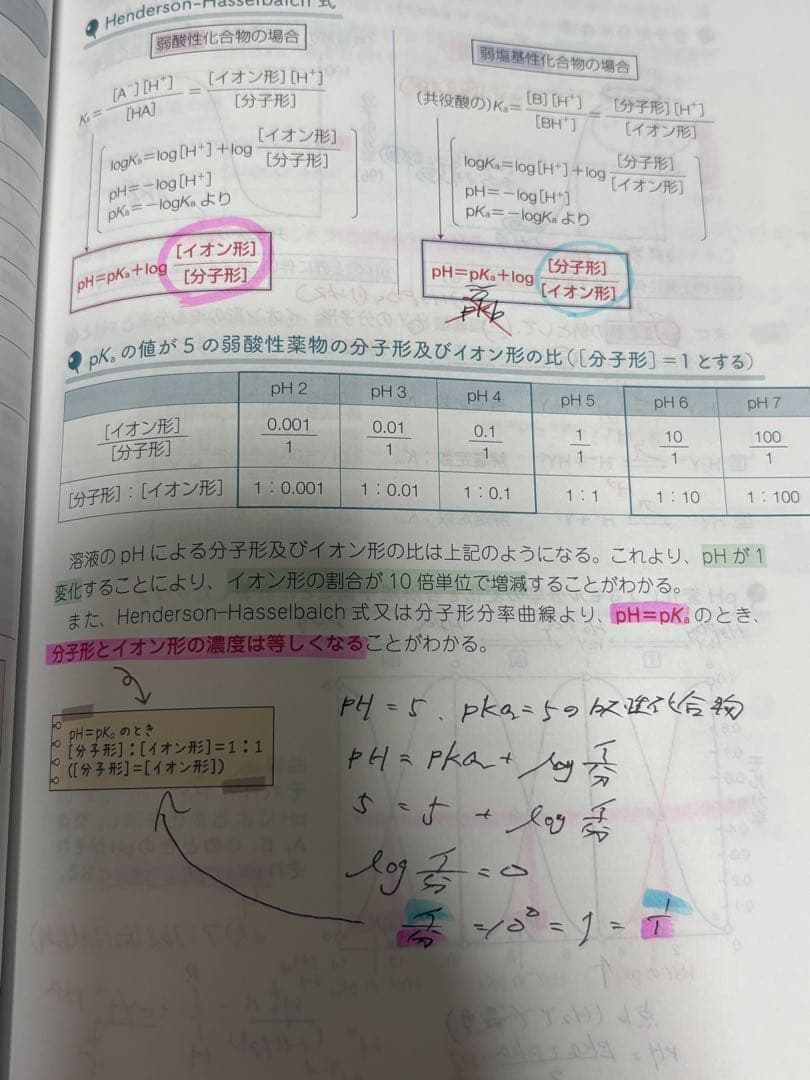 Henderson-Hasselbalch 式
弱酸性化合物の場合
Ka=[A⁻][H⁺]/[HA]=[イオン形][H⁺]/[分子形]
logKa=log[H⁺]+log[イオン形]/[分子形]
pH=-log[H⁺]
pKa=-logKaより
pH=pKa+log[イオン形]/[分子形]
弱塩基性化合物の場合
(共役酸の)Ka=[B][H⁺]/[BH⁺]=[分子形][H⁺]/[イオン形]
logKa=log[H⁺]+log[分子形]/[イオン形]
pH=-log[H⁺]
pKa=-logKaより
pH=pKa+log[分子形]/[イオン形]
pKb
pKaの値が5の弱酸性薬物の分子形及びイオン形の比([分子形]=1とする)
pH 2 pH 3 pH 4 pH 5 pH 6 pH 7
[イオン形]/[分子形] 0.001/1 0.01/1 0.1/1 1/1 10/1 100/1
[分子形]:[イオン形] 1:0.001 1:0.01 1:0.1 1:1 1:10 1:100
溶液のpHによる分子形及びイオン形の比は上記のようになる。これより、pHが1
変化することにより、イオン形の割合が10倍単位で増減することがわかる。
また、Henderson-Hasselbalch 式又は分子形分率曲線より、pH=pKaのとき、
分子形とイオン形の濃度は等しくなることがわかる。
pH=pKaのとき
[分子形]:[イオン形]=1:1
([分子形]=[イオン形])
pH=5、pka=5の酸性化合物
pH=pka+logイ/分
5=5+logイ/分
logイ/分=0
イ/分=10⁰=1=1/1